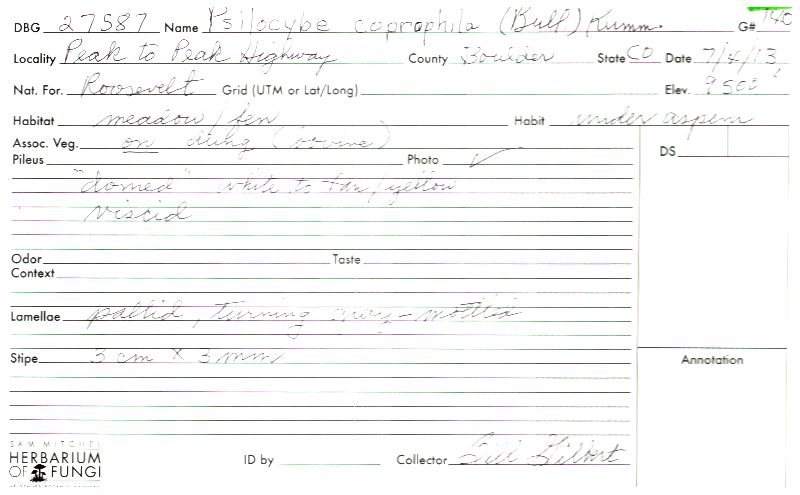 DBG 27587 Name Psilocybe coprophila (Bull) Kumm. G# 140
Locality Peak to Peak Highway County Boulder State CO Date 7/4/13
Nat. For. Roosevelt Grid (UTM or Lat/Long) Elev. 9500'
Habitat meadow / fen Habit under aspen
Assoc. Veg. on dung (bovine)
DS
Pileus Photo ✓
"domed" white to tan/yellow
viscid
Odor Taste
Context
Lamellae pallid, turning gray-mottled
Stipe 3 cm x 3 mm
Annotation
SAM MITCHEL
HERBARIUM
OF FUNGI
ID by Collector Gilbert